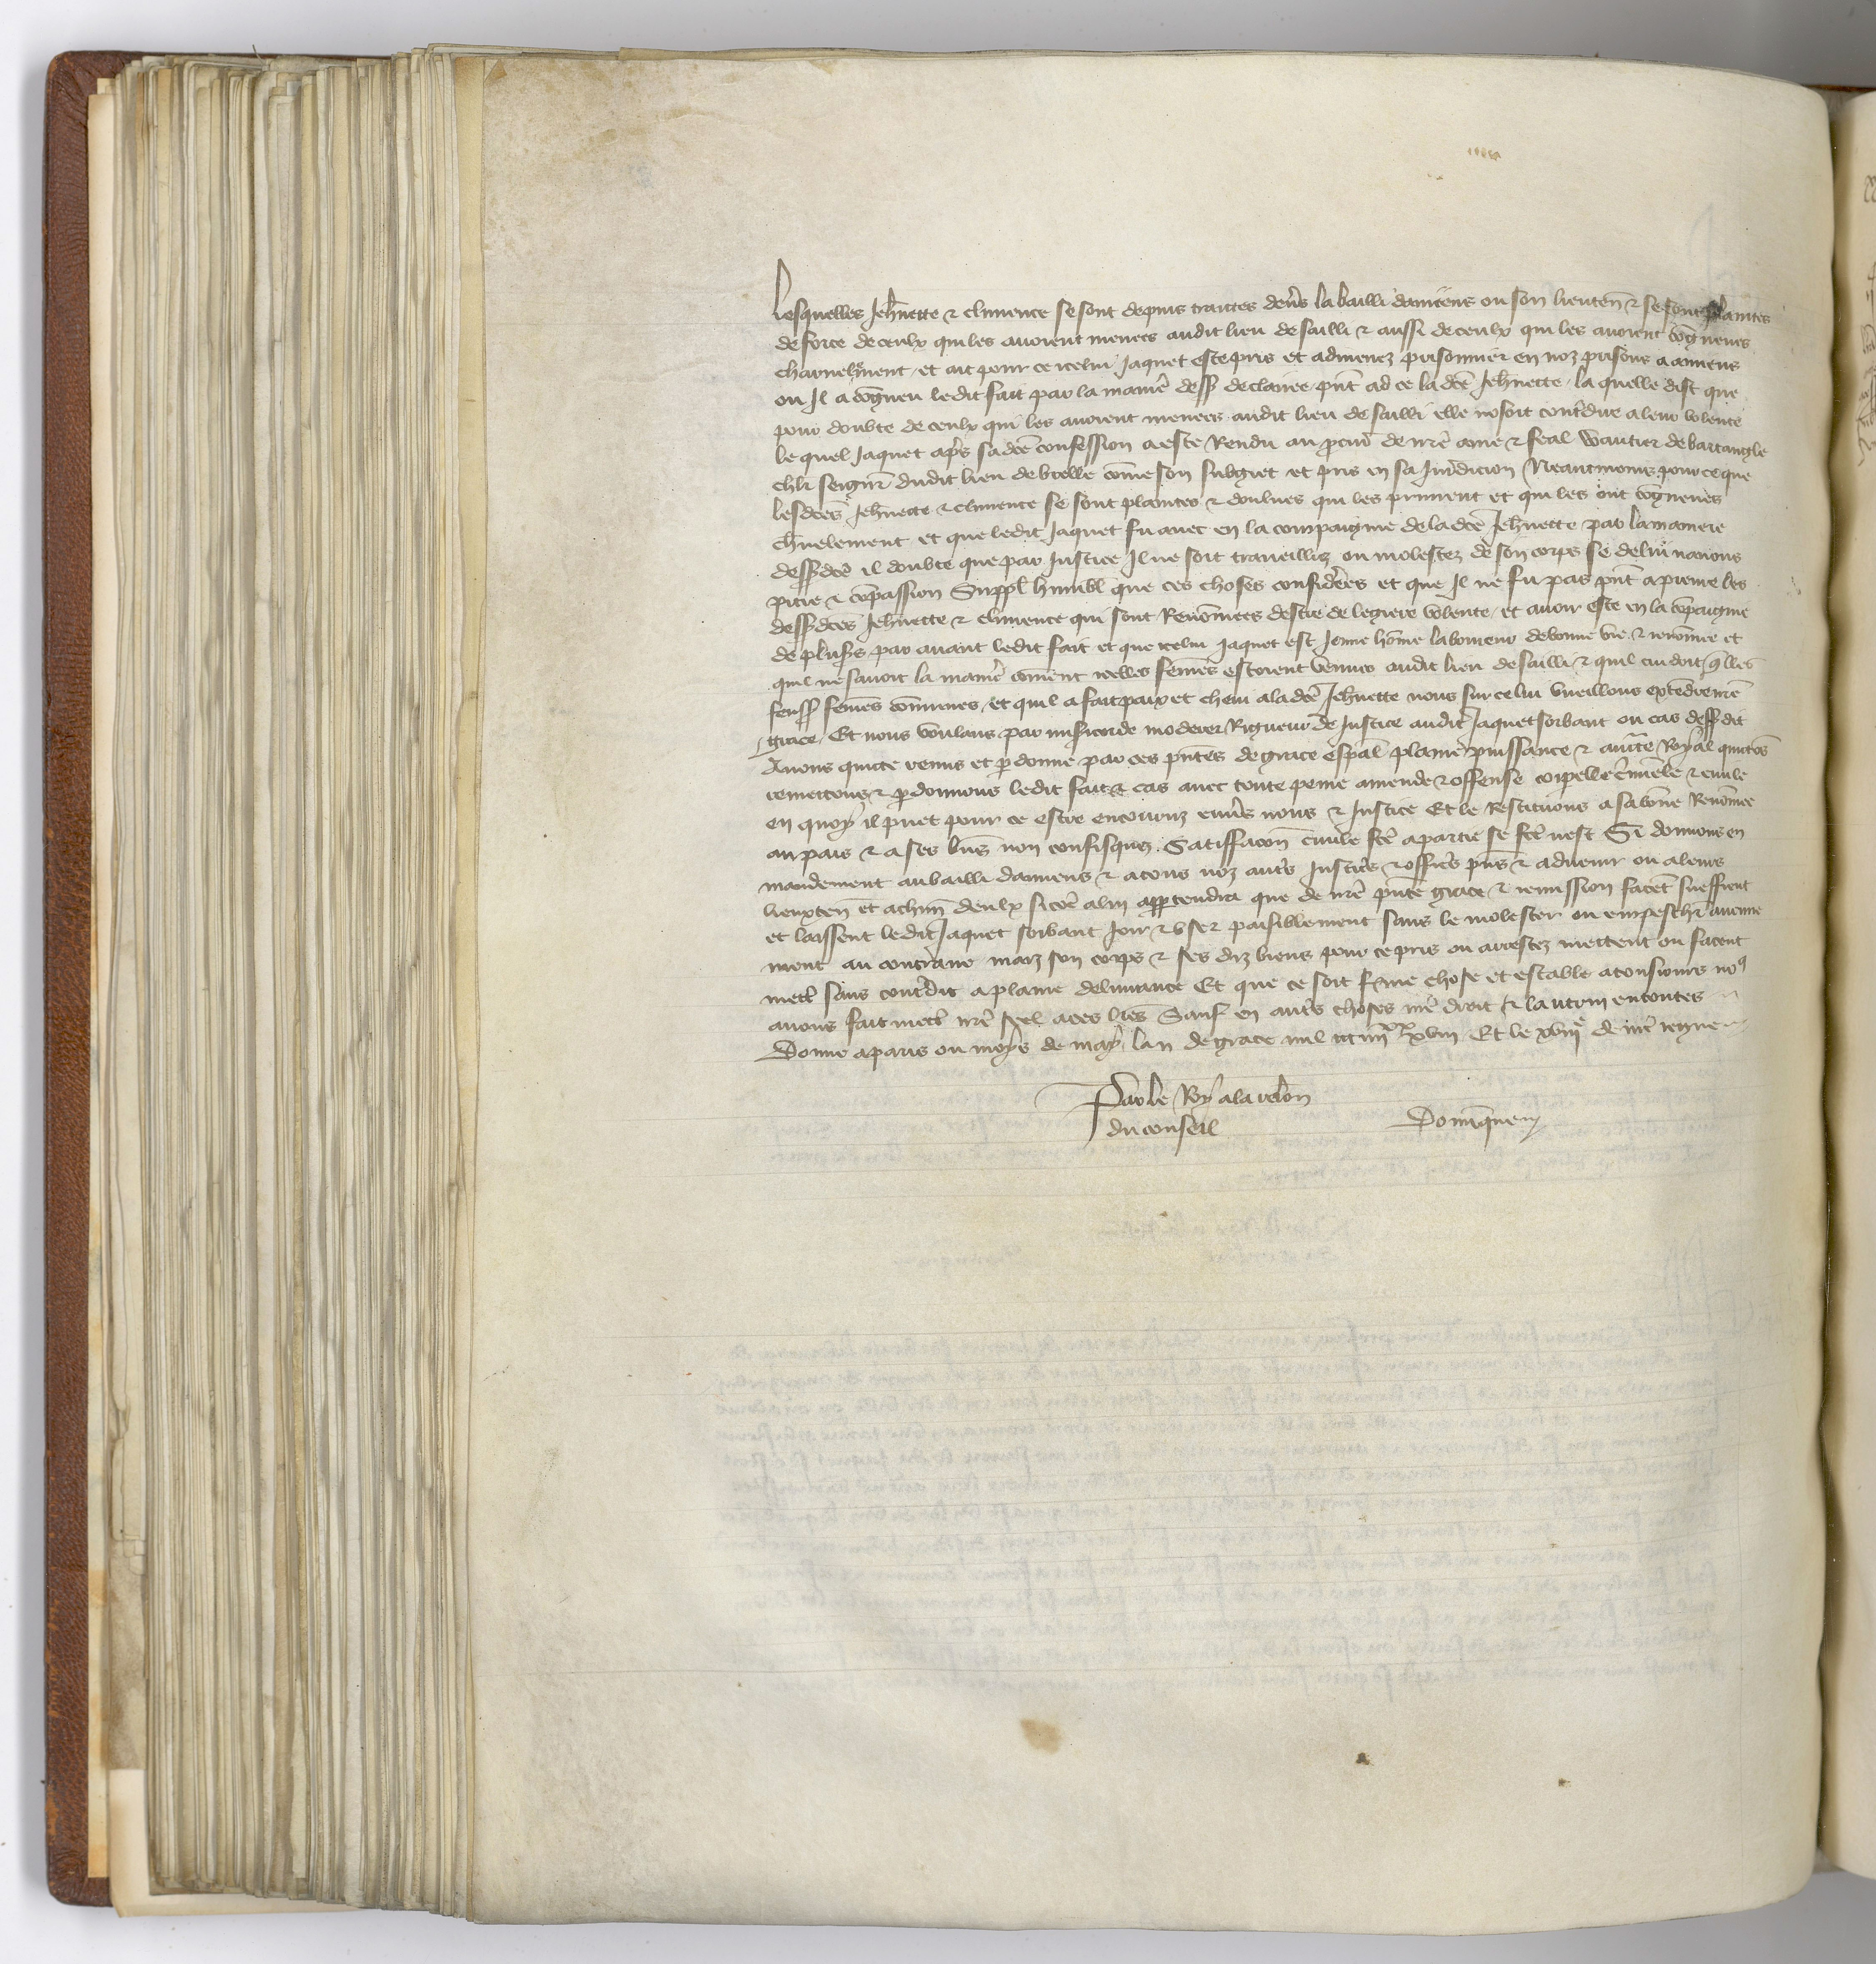 Lesquelles Jehnette & climence se sont depuis traittes devs la bailli damiens ou son lieuten & se sont plaintes
de force de ceulx qui les avoient menees audit lieu de sailli & aussi de ceulx qui les avoient cogneues
charnelment / et ait pour ce icelui Jaquet este pris et admenez prisonnier en noz prisons a amiens
ou Il a cogneu ledit fait par la manie dess declairee pnt ad ce la dce Jehnette / la quelle dist que
pour doubte de ceulx qui les avoient menees audit lieu de sailli elle nosoit contdire a leur volente
le quel Jaquet aps sa dce confession a este Rendu au pcur de nre ame & feal Wautier de bartangle
chlr seignr dudit lieu de come son subgiet et pris en sa Jurdicion / Neantmoins pour ce que
lesdces Jehnette & climence se sont plaintes & doulues qui les prinrent et qui les ont cogneues
chnelement / et que ledit Jaquet fu avec en la compaignie de la dce Jehnette par la maniere
dessdce il doubte que par Justice Il ne soit traveilliez ou molestez de son corps se de lui navions
pitie & copassion Suppl humbl que ces choses consideres et que Il ne fu pas pnt a prenre les
dessdces Jehnette & climence qui sont Renomees destre de legiere volente / et avoir este en la copaignie
de plusrs par avant ledit fait et que icelui Jaquet est Jeune home laboureur de bonne vie & renomee et
quil ne savoit la manie coment icelles femes estoient venues audit lieu de sailli & quil cuidoit qlles
feuss femes comunes / et quil a fait paix et chevi a la dce Jehnette nous sur ce lui vueillons extedre nre
grace / Et nous voulans par misicorde moderer Rigueur de Justice audit Jaquet sorbant ou cas dessdit
Avons quicte remis et pdonne par ces pntes de grace espal plaine puissance & aucte Royal quictos
remettons & pdonnons ledit fait & cas avec toute peine amende & offense corpelle criminele & civile
en quoy il puet pour ce estre encouruz envs nous & Justice Et le Restituons a sa bone Renomee
au pais & a ses bns non confisquez. Satiffacon civile fce a partie se fce nest Si donnons en
mandement au bailli damiens & a tous noz auts Justics & offics pns & advenir ou a leurs
lieuxten et a chun deulx sicoe a lui apptendra que de nre pnte grace & remission facet sueffrent
et laissent ledit Jaquet sorbant Joir & user paisiblement sans le molester ou empeschr aucune
ment au contraire maiz son corps & ses diz biens pour ce pris ou arrestez mettent ou facent
mett sans contdit a plaine delivrance Et que ce soit ferme chose et estable a tousiours no9
avons fait mett nre seel a ces lres Sauf en auts choses nre droit & lautrui en toutes
Donne a paris ou moys de may lan de grace mil ccc iiii xx xviii Et le xviiie de nre regne
Par le Roy a la relon
du conseil
Dominique